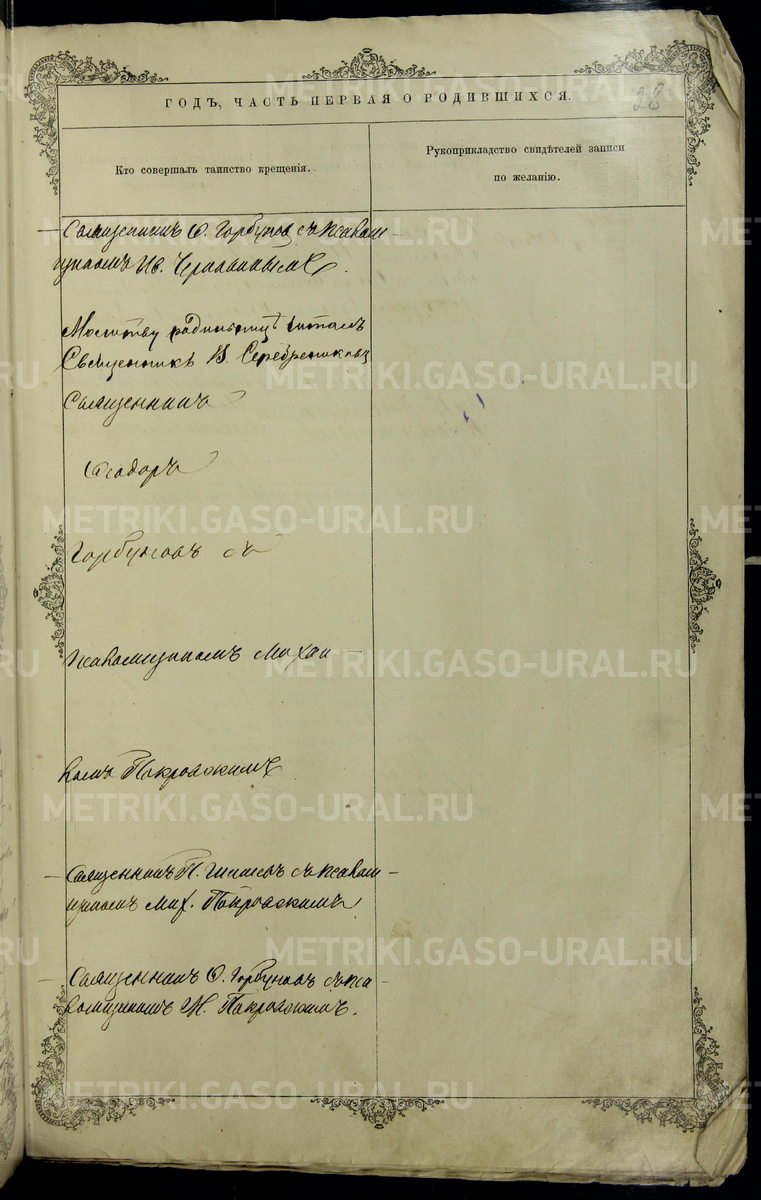 ГОДЪ, ЧАСТЬ ПЕРВАЯ О РОДИВШИХСЯ.
28
Кто совершалъ таинство крещенія.
Рукоприкладство свидѣтелей записи
по желанію.
Священникъ Ѳ. Горбуновъ съ псалом-
щикомъ Ив.
Молитву родильницѣ читалъ
Священникъ В. Серебренниковъ
Священникъ
Ѳеодоръ
Горбуновъ съ
псаломщикомъ Михаи-
ломъ Покровскимъ
Священникъ П. съ псалом-
щикомъ Мих. Покровскимъ
Священникъ Ѳ. Горбуновъ съ пса-
ломщикомъ М. Покровскимъ.
METRIKI.GASO-URAL.RU